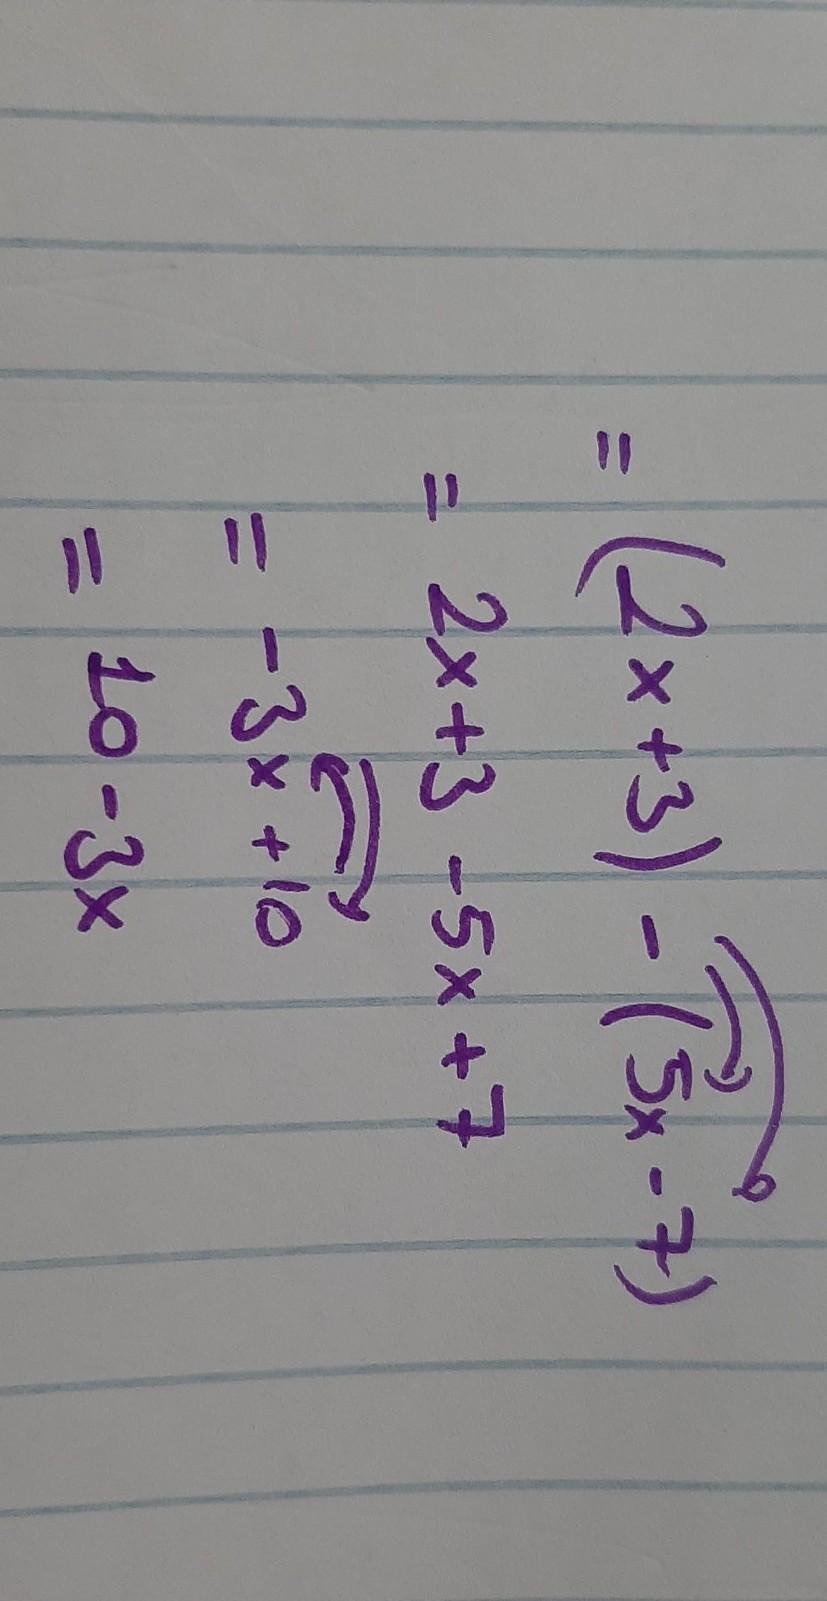 = (2x+3) - (5x-7)
= 2x+3 -5x +7
= -3x +10
= 10 -3x